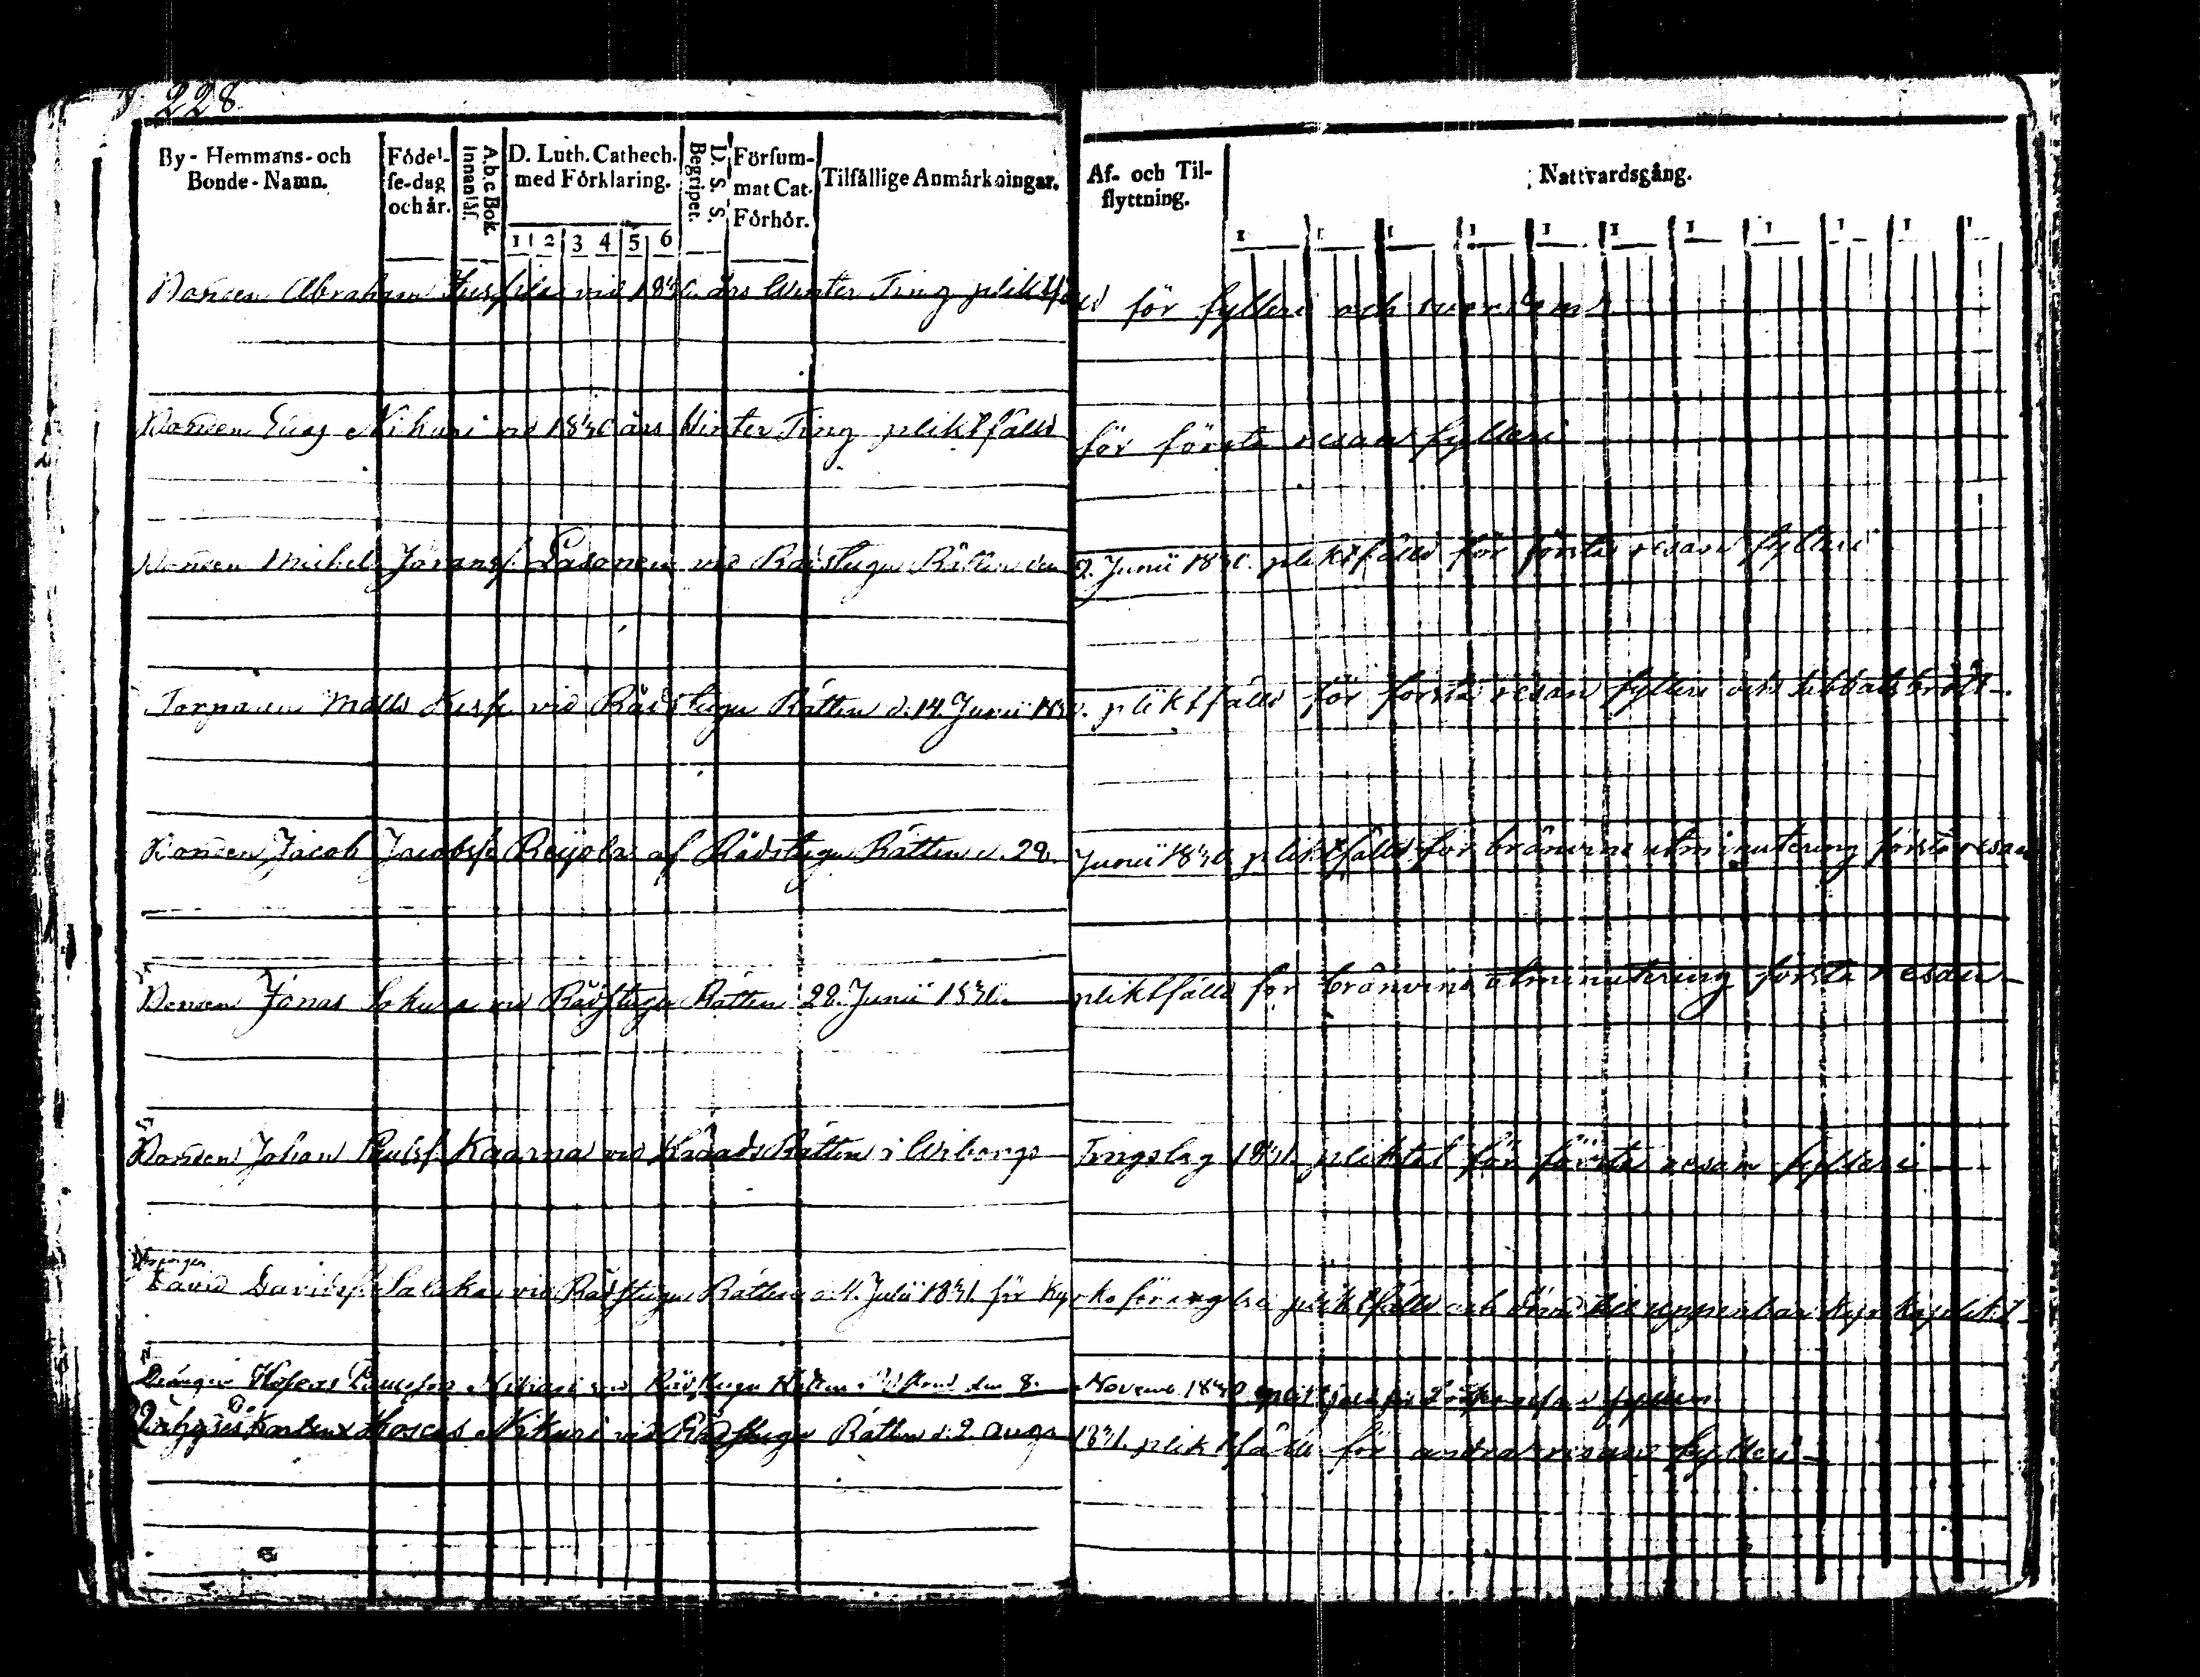 228
By- Hemmans- och Bonde-Namn.
Födelse-dag och år.
A.b.c Bok. Innanläs.
D. Luth. Cathech. med Förklaring.
1 2 3 4 5 6
D. S. S. Begripet.
Försummat Cat. Förhör.
Tilfällige Anmärkningar.
Af- och Tilflyttning.
Nattvardsgång.
Bonden Abraham vid 1830 års Winter Ting pliktfäld för fylleri och
Bonden Elias Nikuri vid 1830 års Winter Ting pliktfälld för första resan fylleri
Bonden Michel Joransf. Pasonen vid Rådstugu Rätten den 2. Junii 1830. pliktfälld för första resan fylleri
Torparen Matts vid Rådstugu Rätten d. 14. Junii 1830. pliktfälld för första resan fylleri och sabbatsbrott.
Bonden Jacob Jacobsf. Reijola af Rådstugu Rätten d. 28. Junii 1830 pliktfälld för bränvins utminutering första resan
Bonden Jonas vid Rådstugu Rätten 28. Junii 1830 pliktfälld för bränvins utminutering första resan
Bonden Johan Paulsf. Kaarna vid Härads Rätten i Wiborgs Tingslag 1831. för första resan fylleri
David Davidsf. vid Rådstugu Rätten d. 4. Julii 1831. för Kyrko förargelse pliktfälld och till uppenbar Kyrkoplikt
Drängen vid Rådstugu Rätten den 8. Novemb. 1830 fylleri
Nikuri vid Rådstugu Rätten d. 2. Aug. 1831. pliktfälld för andra resan fylleri